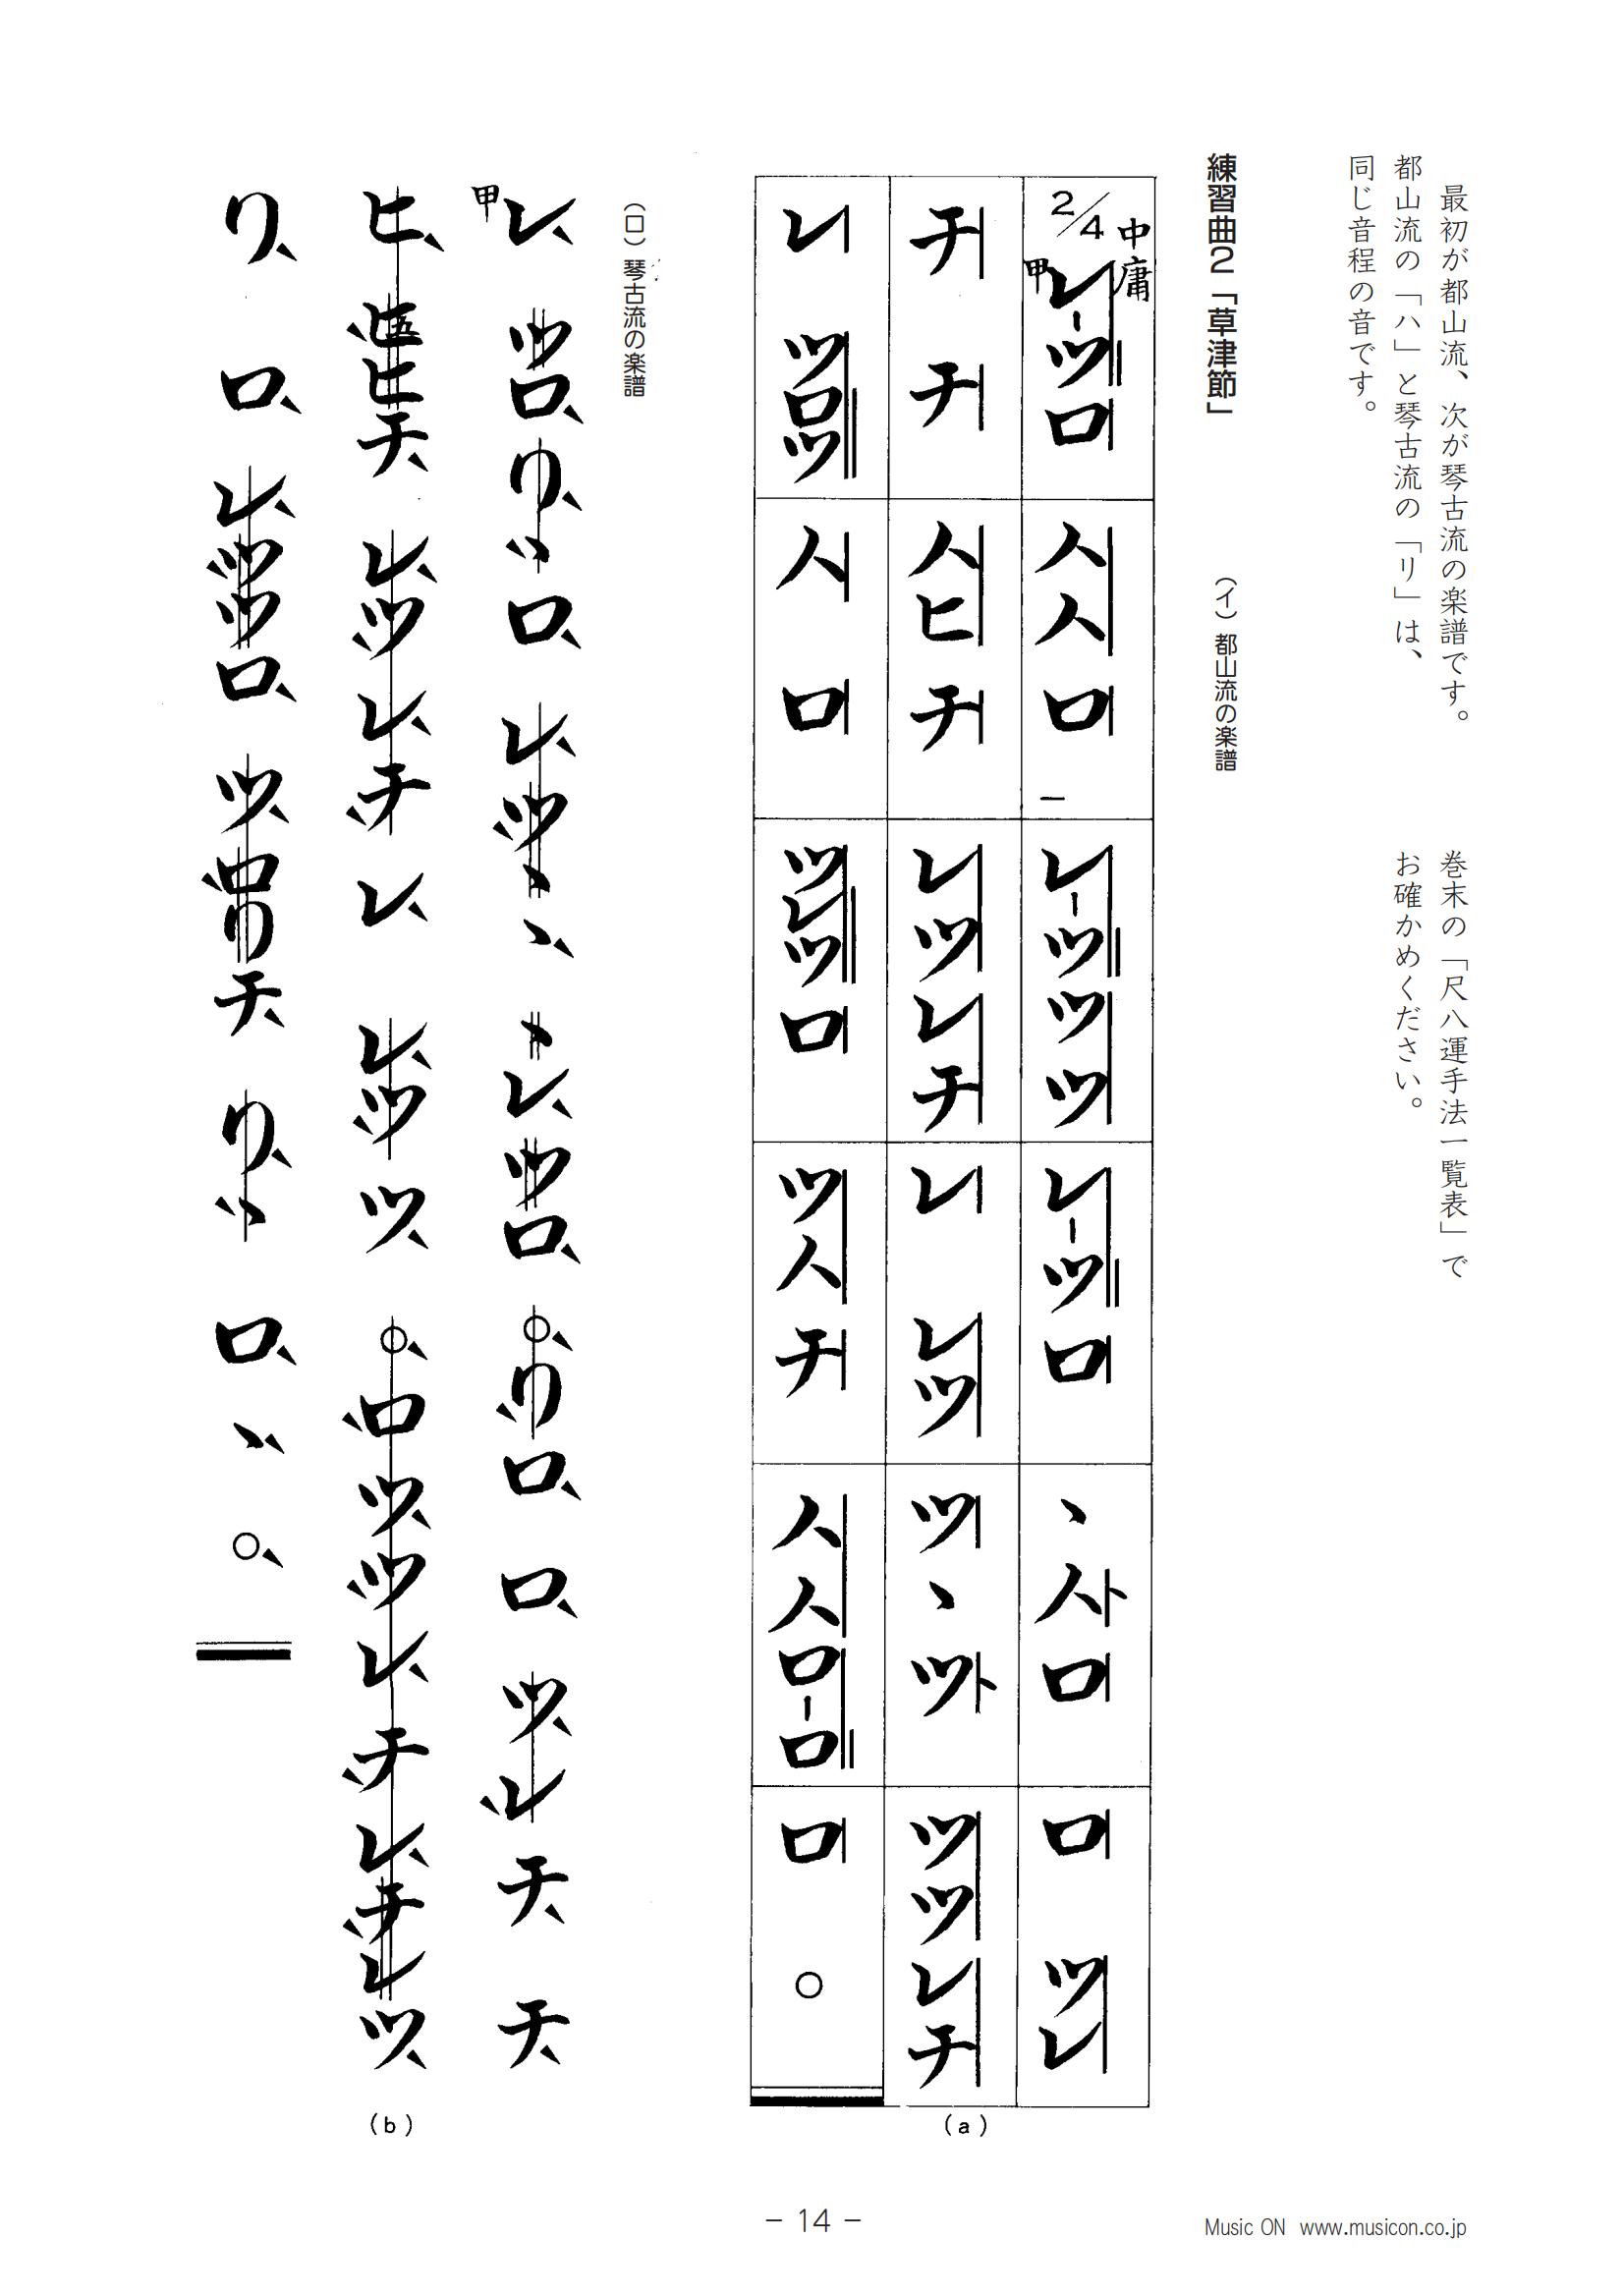 最初が都山流、次が琴古流の楽譜です。
都山流の「ハ」と琴古流の「リ」は、
同じ音程の音です。
巻末の「尺八運手法一覧表」で
お確かめください。
練習曲2「草津節」
（イ）都山流の楽譜
中庸
2/4
甲
レーツロ ハハロー レーツツツ レーツロ 、ハロ ロツレ
チチ ハヒチ レツレチ レレツ ツ、ツ ツツレチ
レツロツ ハロ ツレツロ ツハチ ハハローロ ロ○
(a)
（ロ）琴古流の楽譜
甲
レツロリ、ロレツ、、、レツロ○リロロツレチチ
ヒ五ヒヒチレツレチレレツツ○ロツツレチレチレツ
リロレツツロツロリチリ、ロ、○
(b)
− 14 −
Music ON www.musicon.co.jp